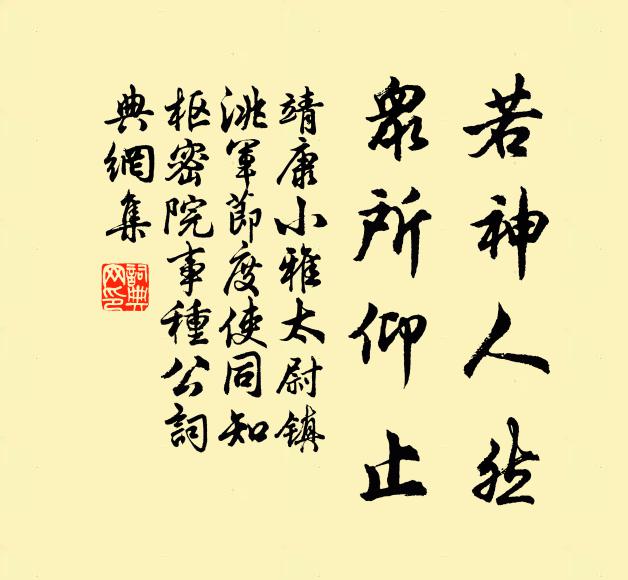 若神人然
衆所仰止
靖康小雅太尉鎮
洮軍節度使同知
枢密院事種公詞
典網集
詞典
网印